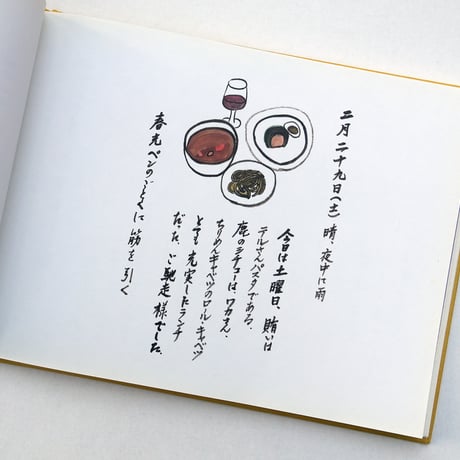 二月二十九日(土) 晴、夜中に雨
今日は土曜日、賄いは
テルさんパスタである、
鹿のシチューは、ワカさん、
ちりめんキャベツのロール・キャベツ
とても充実したランチ
だった、ご馳走様でした。
春光ペンのごとくに筋を引く